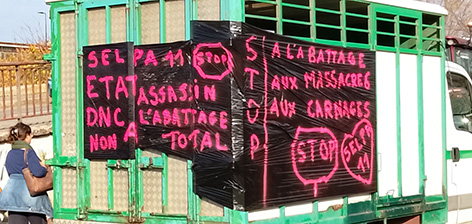 SELPA 11 STOP
ETAT ASSASSIN
DNC A L'ABATTAGE
NON TOTAL
STOP
A L'ABATTAGE
AUX MASSACRES
AUX CARNAGES
STOP
SELPA
11